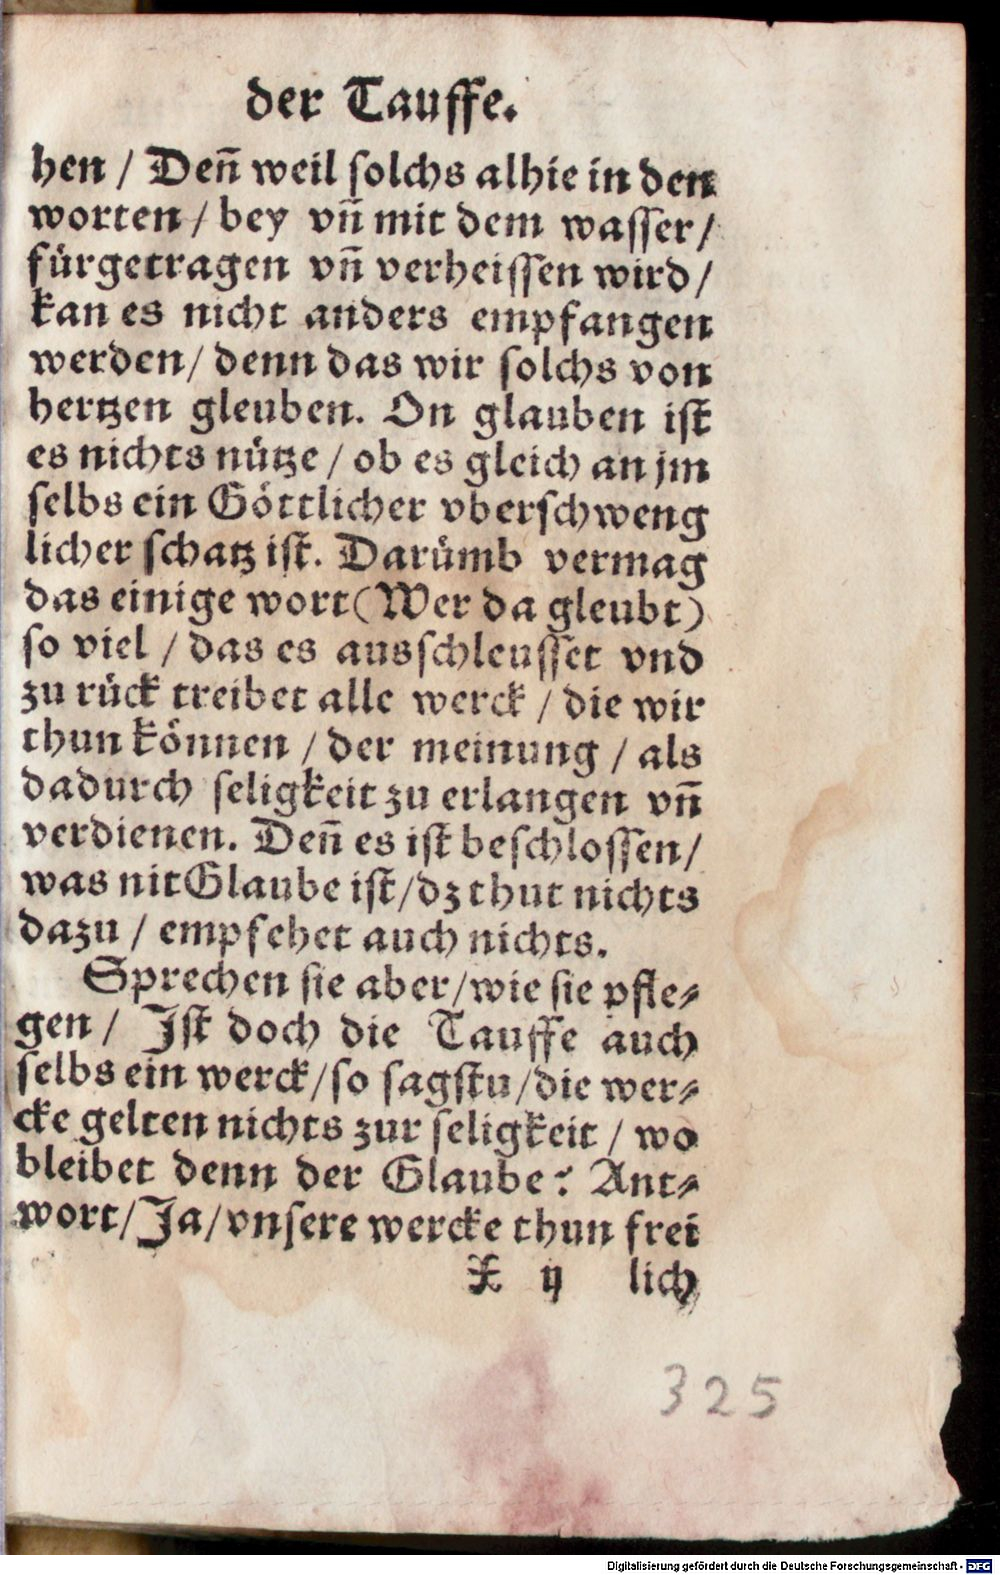 der Tauffe.
hen / Deñ weil solchs alhie in den
worten / bey vñ mit dem wasser /
fürgetragen vñ verheissen wird /
kan es nicht anders empfangen
werden / denn das wir solchs von
hertzen gleuben. On glauben ist
es nichts nütze / ob es gleich an jm
selbs ein Göttlicher vberschweng
licher schatz ist. Darümb vermag
das einige wort (Wer da gleubt)
so viel / das es ausschleusset vnd
zu rück treibet alle werck / die wir
thun können / der meinung / als
dadurch seligkeit zu erlangen vñ
verdienen. Deñ es ist beschlossen /
was nit Glaube ist / dz thut nichts
dazu / empfehet auch nichts.
Sprechen sie aber / wie sie pfle⸗
gen / Jst doch die Tauffe auch
selbs ein werck / so sagstu / die wer⸗
cke gelten nichts zur seligkeit / wo
bleibet denn der Glaube? Ant⸗
wort / Ja / vnsere wercke thun frei
X ij lich
325
Digitalisierung gefördert durch die Deutsche Forschungsgemeinschaft - DFG